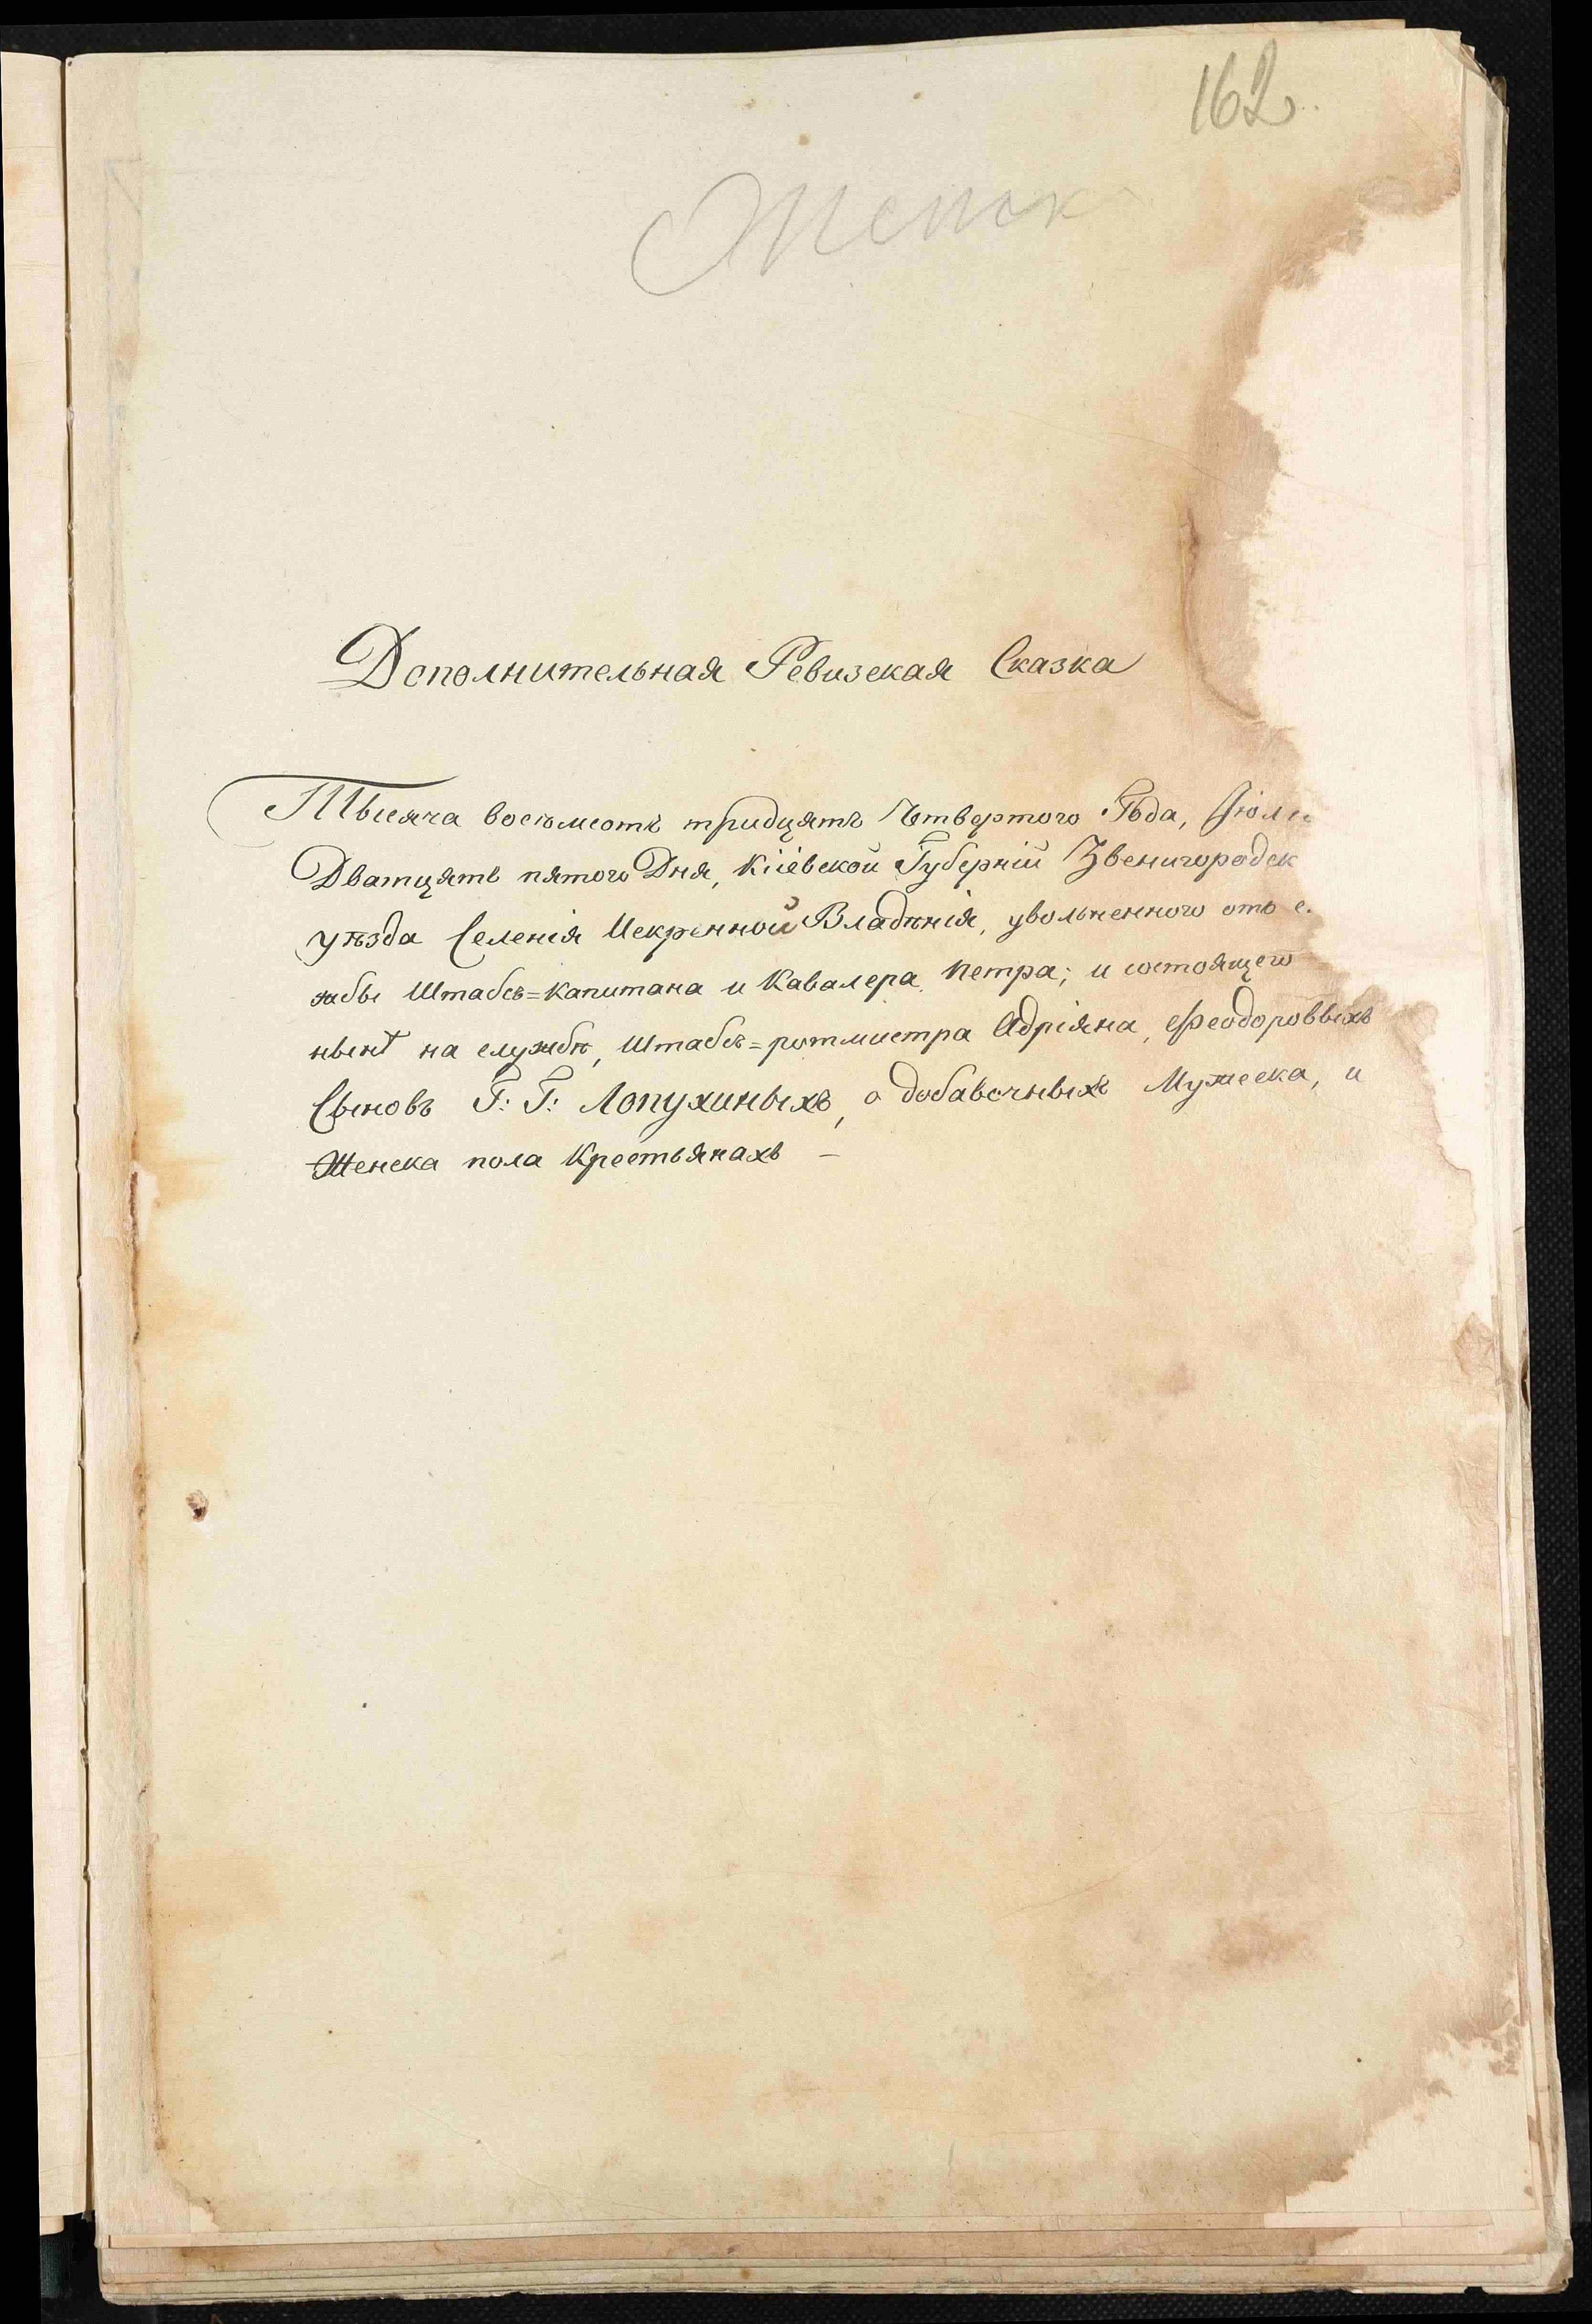 162
Дополнительная Ревизская Сказка
Тысяча восемсотъ тридцять Четвертого Года, Іюля
Дватцять пятого Дня, Кіевской Губерніи Звенигородск
уѣзда Селенія Искренной Владѣнія, уволненного отъ с
жбы Штабсъ=Капитана и Кавалера Петра; и состоящего
нынѣ на службѣ, Штабсъ=ротмистра Адріяна, Феодоровыхъ
Сыновъ Г: Г: Лопухиныхъ, о добавочныхъ Мужеска, и
Женска пола Крестьянахъ —